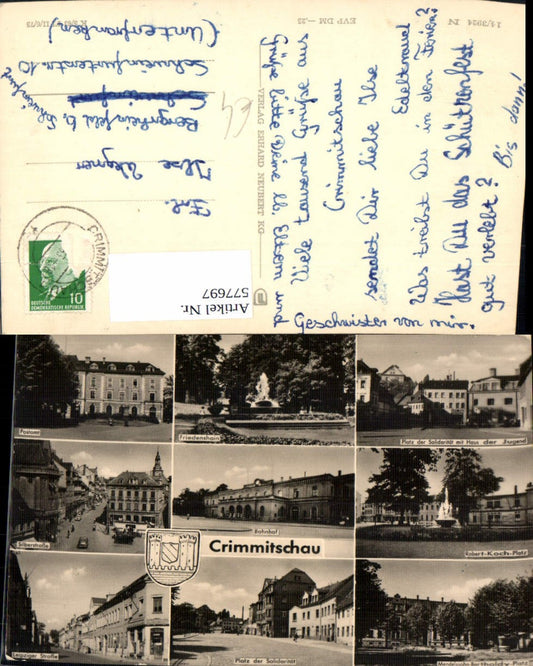 Viele tausend Grüße aus
Crimmitschau
sendet Dir liebe Ilse
Edeltraud
Was treibst Du in den Ferien?
Hast Du das Schützenfest
gut verlebt? Bis dann!
Grüße bitte Deine lb. Eltern und
Geschwister von mir.
14/3924 N
EVP DM -.25
K 2/63
VERLAG ERHARD NEUBERT KG
CRIMMITSCHAU
10
DEUTSCHE
DEMOKRATISCHE REPUBLIK
Frl.
Ilse Wegner
Bergrheinfeld b. Schweinfurt
Schweinfurterstr. 10
(Unterfranken)
Artikel Nr.
577697
Postamt
Friedenshain
Platz der Solidarität mit Haus der Jugend
Silberstraße
Bahnhof
Robert-Koch-Platz
Crimmitschau
Leipziger Straße
Platz der Solidarität